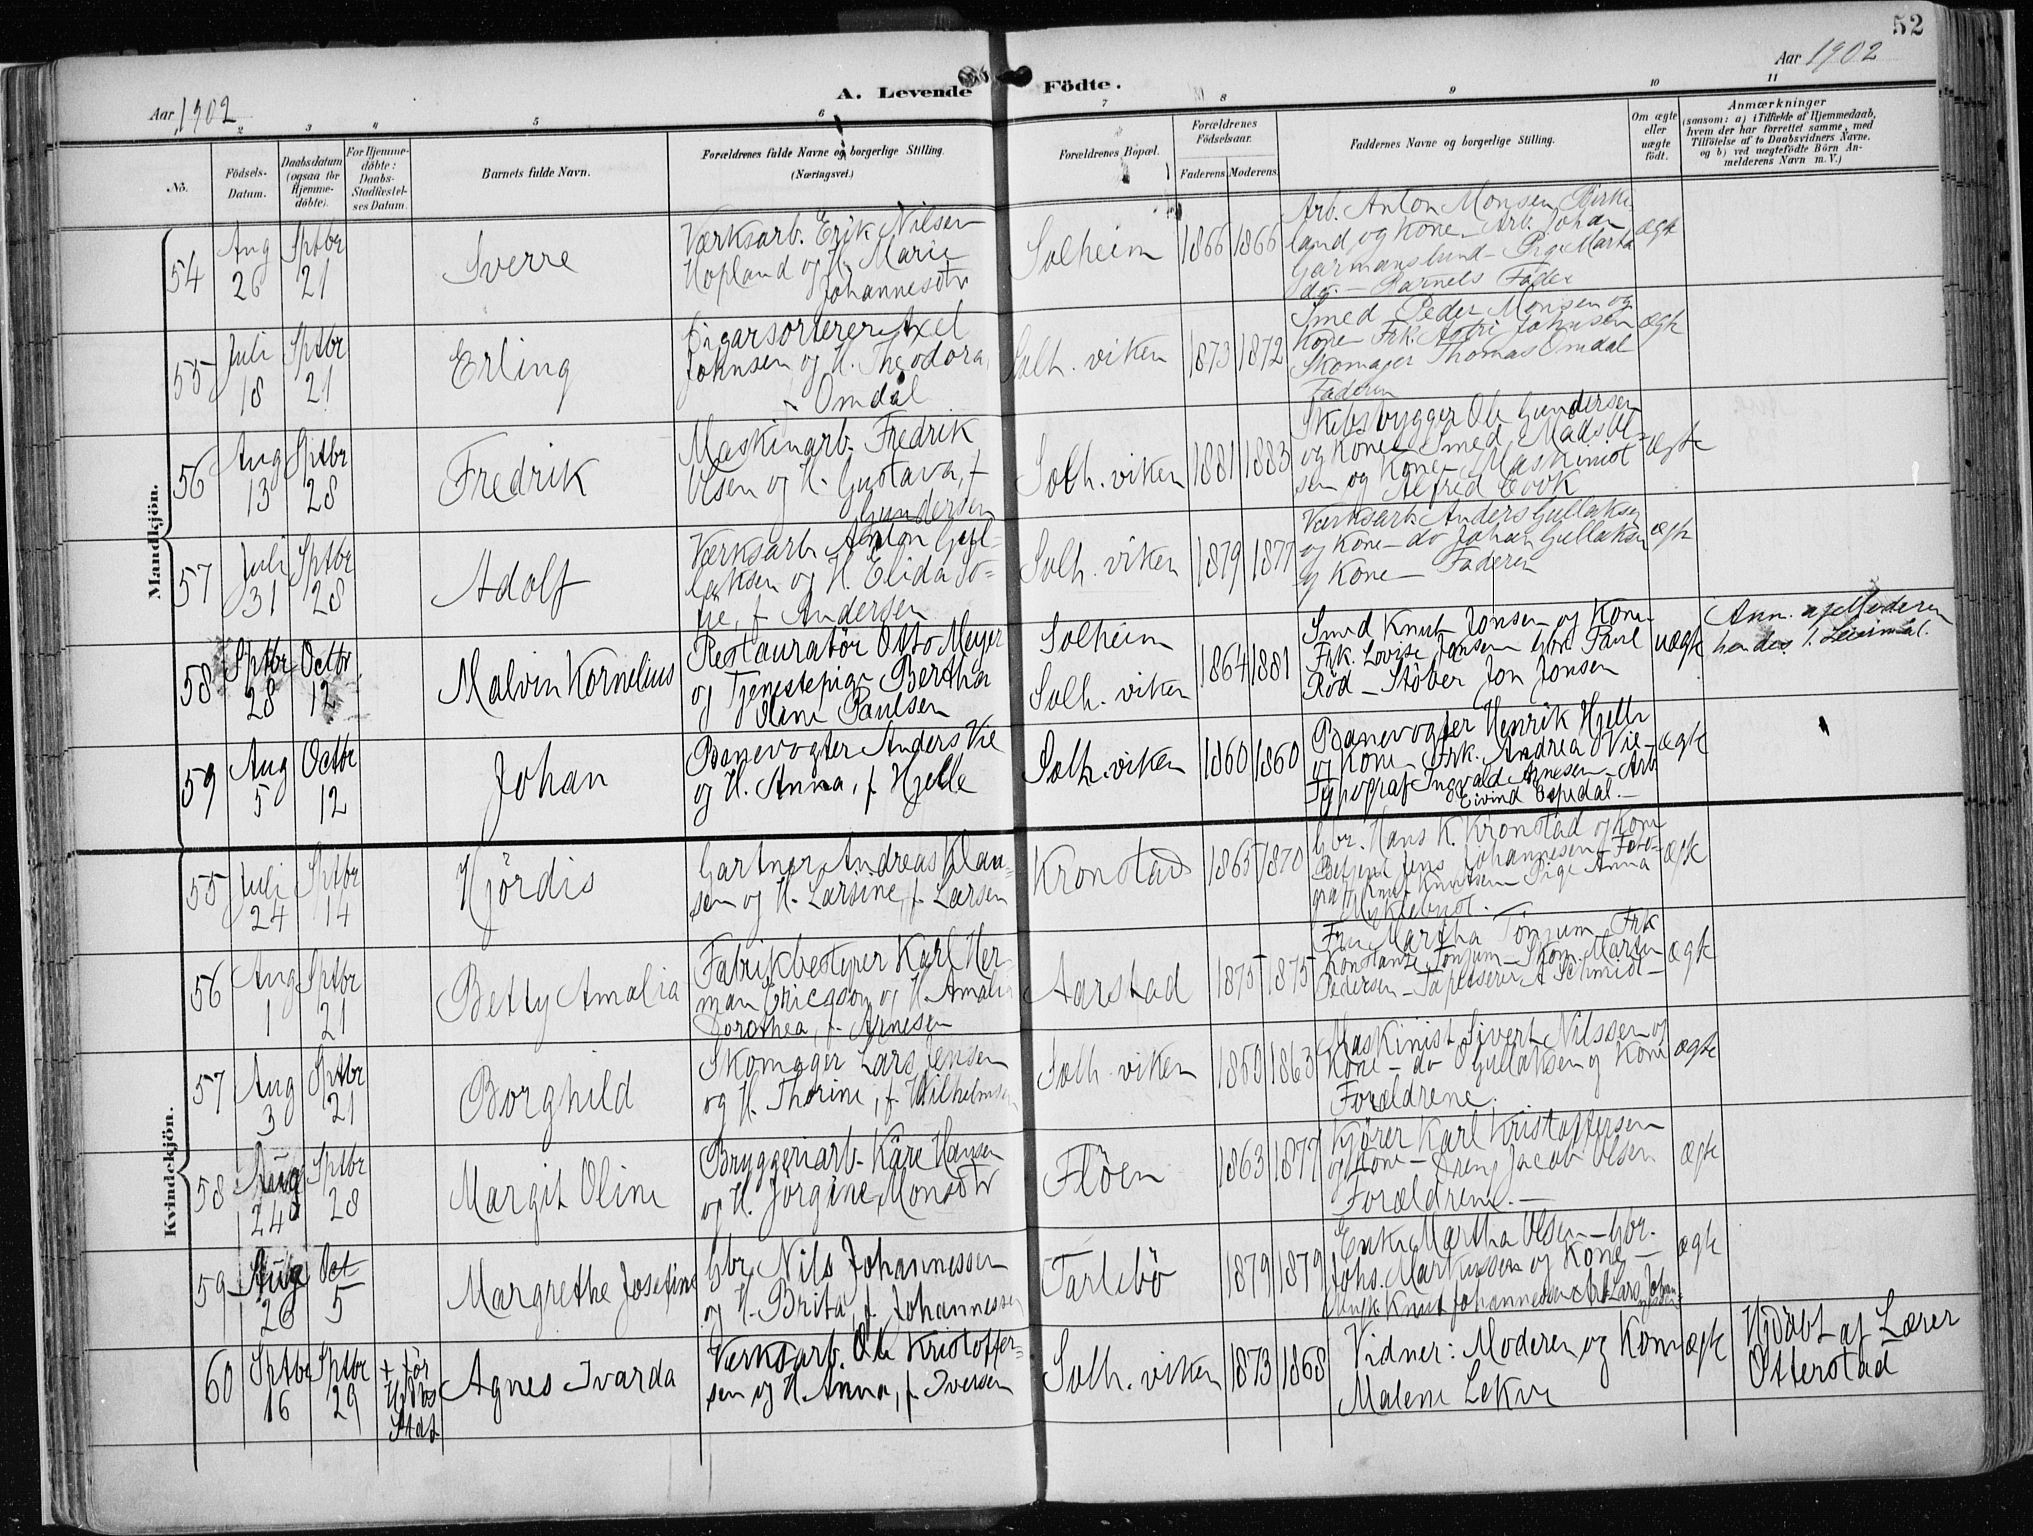 52
Aar 1902
Aar 1902
A. Levende Födte.
1 2 3 4 5 6 7 8 9 10 11
No.
Födsels-
Datum.
Daabsdatum
(ogsaa for
Hjemme-
döbte).
For Hjemme-
döbte:
Daabs-
Stadfæstel-
ses Datum.
Barnets fulde Navn.
Forældrenes fulde Navne og borgerlige Stilling.
(Næringsvei.)
Forældrenes Bopæl.
Forældrenes
Födselsaar.
Faderens Moderens.
Faddernes Navne og borgerlige Stilling.
Om ægte
eller
uægte
födt.
Anmærkninger
(saasom: a) i Tilfælde af Hjemmedaab,
hvem der har forrettet samme, med
Tilföielse af to Daabsvidners Navne.
og b) ved uægtefödte Börn An-
melderens Navn m. V.)
Mandkjön.
54
Aug
26
Sptbr
21
Sverre
Værksarb. Erik Nilsen
Hopland og H. Marie
Johannesdtr
Solheim
1866
1866
Arb. Anton Monsen Birke
land og Kone - Arb. Johan
Garmanslund - Pige Marta
do. - Barnets Fader
ægte
55
Juli
18
Sptbr
21
Erling
Cigarsorterer Axel
Johnsen og H. Theodora,
Omdal
Solh. viken
1873
1872
Smed Peder Monsen og
Kone - Frk. Johnsen
Skomager Thomas Omdal
Faderen
ægte
56
Aug
13
Sptbr
28
Fredrik
Maskinarb. Fredrik
Olsen og H. Gustava, f.
Gundersen
Solh. viken
1881
1883
Skibsbygger Ole Gundersen
og Kone - Smed Mads Ol-
sen og Kone - Maskinist
Alfred
ægte
57
Juli
31
Sptbr
28
Adolf
Værksarb. Anton Gul-
laksen og H. Elida So-
fie, f. Andersen
Solh. viken
1879
1877
Værksarb. Anders Gullaksen
og Kone - do Johan Gullaksen
og Kone - Faderen
ægte
58
Sptbr
28
Octbr
12
Malvin Kornelius
Restauratör Otto Meyer
og Tjenestepige Bertha
Oline Paulsen
Solheim
Solh. viken
1864
1881
Smed Knut Jonsen og Kone
Frk. Lovise Jansen Gbr. Paul
Röd - Stöber Jon Jonsen
uægte
Ann. af Moderen
hendes 1. Leiermaal.
59
Aug
5
Octbr
12
Johan
Banevogter Anders Vie
og H. Anna, f. Hjelle
Solh. viken
1860
1860
Banevogter Henrik Hjelle
og Kone - Frk. Andrea Vie -
Typograf Ingvald Arnesen - Arb
Eivind Espedal. -
ægte
Kvindekjön.
55
Juli
24
Sptbr
14
Hjördis
Gartner Andreas Klau-
sen og H. Larsine, f. Larsen
Kronstad
1865
1870
Gbr. Hans K. Kronstad og Kone
Betjent Jens Johannesen - Foto-
graf Knut Knutsen - Pige Anna
Myklebust.
ægte
56
Aug
1
Sptbr
21
Betty Amalia
Fabrikbestyrer Karl Her-
man Ericsson og H. Amalia
Dorothea, f. Arnesen
Aarstad
1875
1875
Fru Martha Tönjum - Frk
Konstanse Tönjum - Skom. Marten
Pedersen - Tapetserer A Schmidt -
ægte
57
Aug
3
Sptbr
21
Borghild
Skomager Lars Jensen
og H. Thorine, f. Wilhelmsen
Solh. viken
1860
1863
Maskinist Sivert Nilssen og
Kone - do Gullaksen og Kone
Forældrene.
ægte
58
Aug
24
Sptbr
28
Margit Oline
Bryggeriarb. Kåre Hansen
og H. Jörgine Monsdtr
Flöen
1863
1877
Kjører Karl Kristoffersen
og Kone - Dreng Jacob Olsen
Forældrene. -
ægte
59
Aug
26
Oct
5
Margrethe Josefine
Gbr Nils Johannessen
og H. Brita, f. Johannessen
Tarlebö
1879
1879
Enke Martha Olsen - Gbr.
Johs. Markussen og Kone -
Ungk. Knut Johannessen Arb Lars Johan-
nessen
ægte
60
Sptbr
16
Sptbr
29
+ för
Stdf
Agnes Ivarda
Værksarb. Ole Kristoffer-
sen og H Anna, f. Iversen
Solh. viken
1873
1868
Vidner: Moderen og Kone
Malene Lekve
ægte
Hjdöbt af Lærer
Otterstad